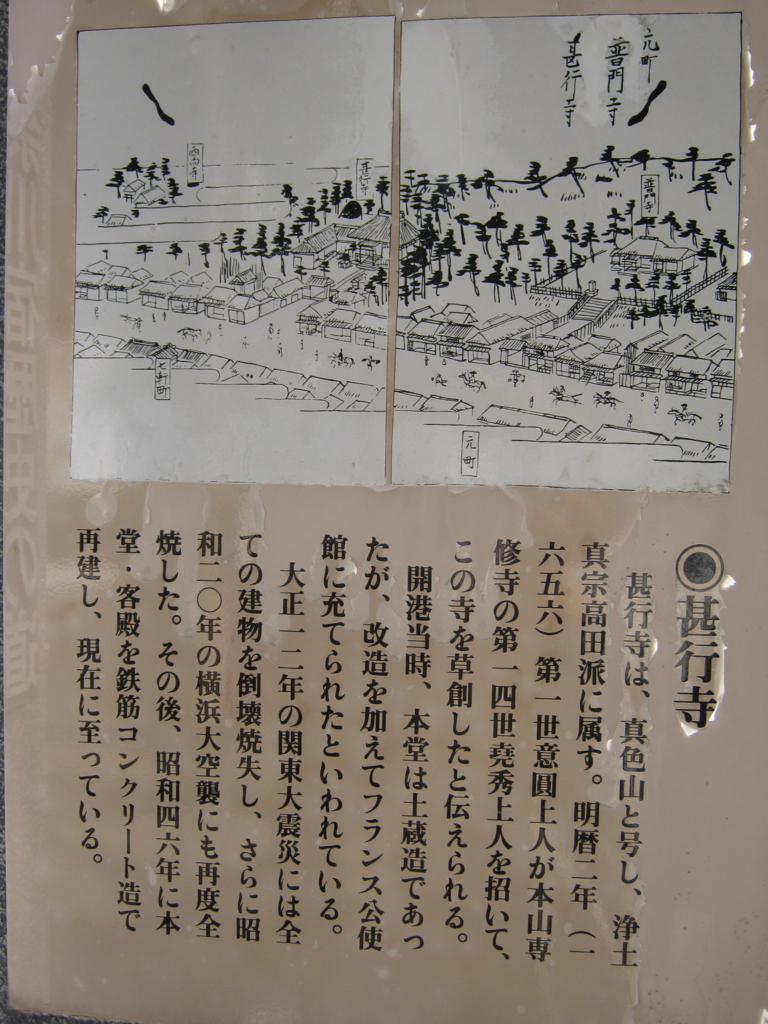 元町
普門寺
甚行寺
普門寺
甚行寺
西向寺
元町
七軒町
◉甚行寺
甚行寺は、真色山と号し、浄土
真宗高田派に属す。明暦二年（一
六五六）第一世意圓上人が本山専
修寺の第一四世堯秀上人を招いて、
この寺を草創したと伝えられる。
開港当時、本堂は土蔵造であっ
たが、改造を加えてフランス公使
館に充てられたといわれている。
大正一二年の関東大震災には全
ての建物を倒壊焼失し、さらに昭
和二〇年の横浜大空襲にも再度全
焼した。その後、昭和四六年に本
堂・客殿を鉄筋コンクリート造で
再建し、現在に至っている。